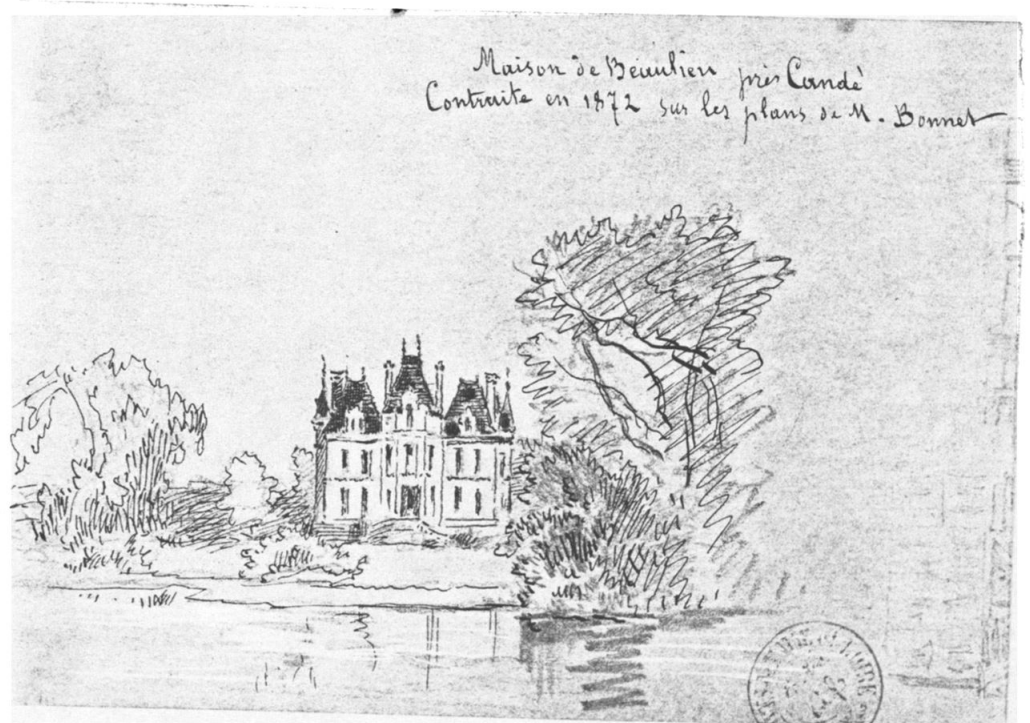 Maison de Beaulieu près Candé
Contruite en 1872 sur les plans de M. Bonnet